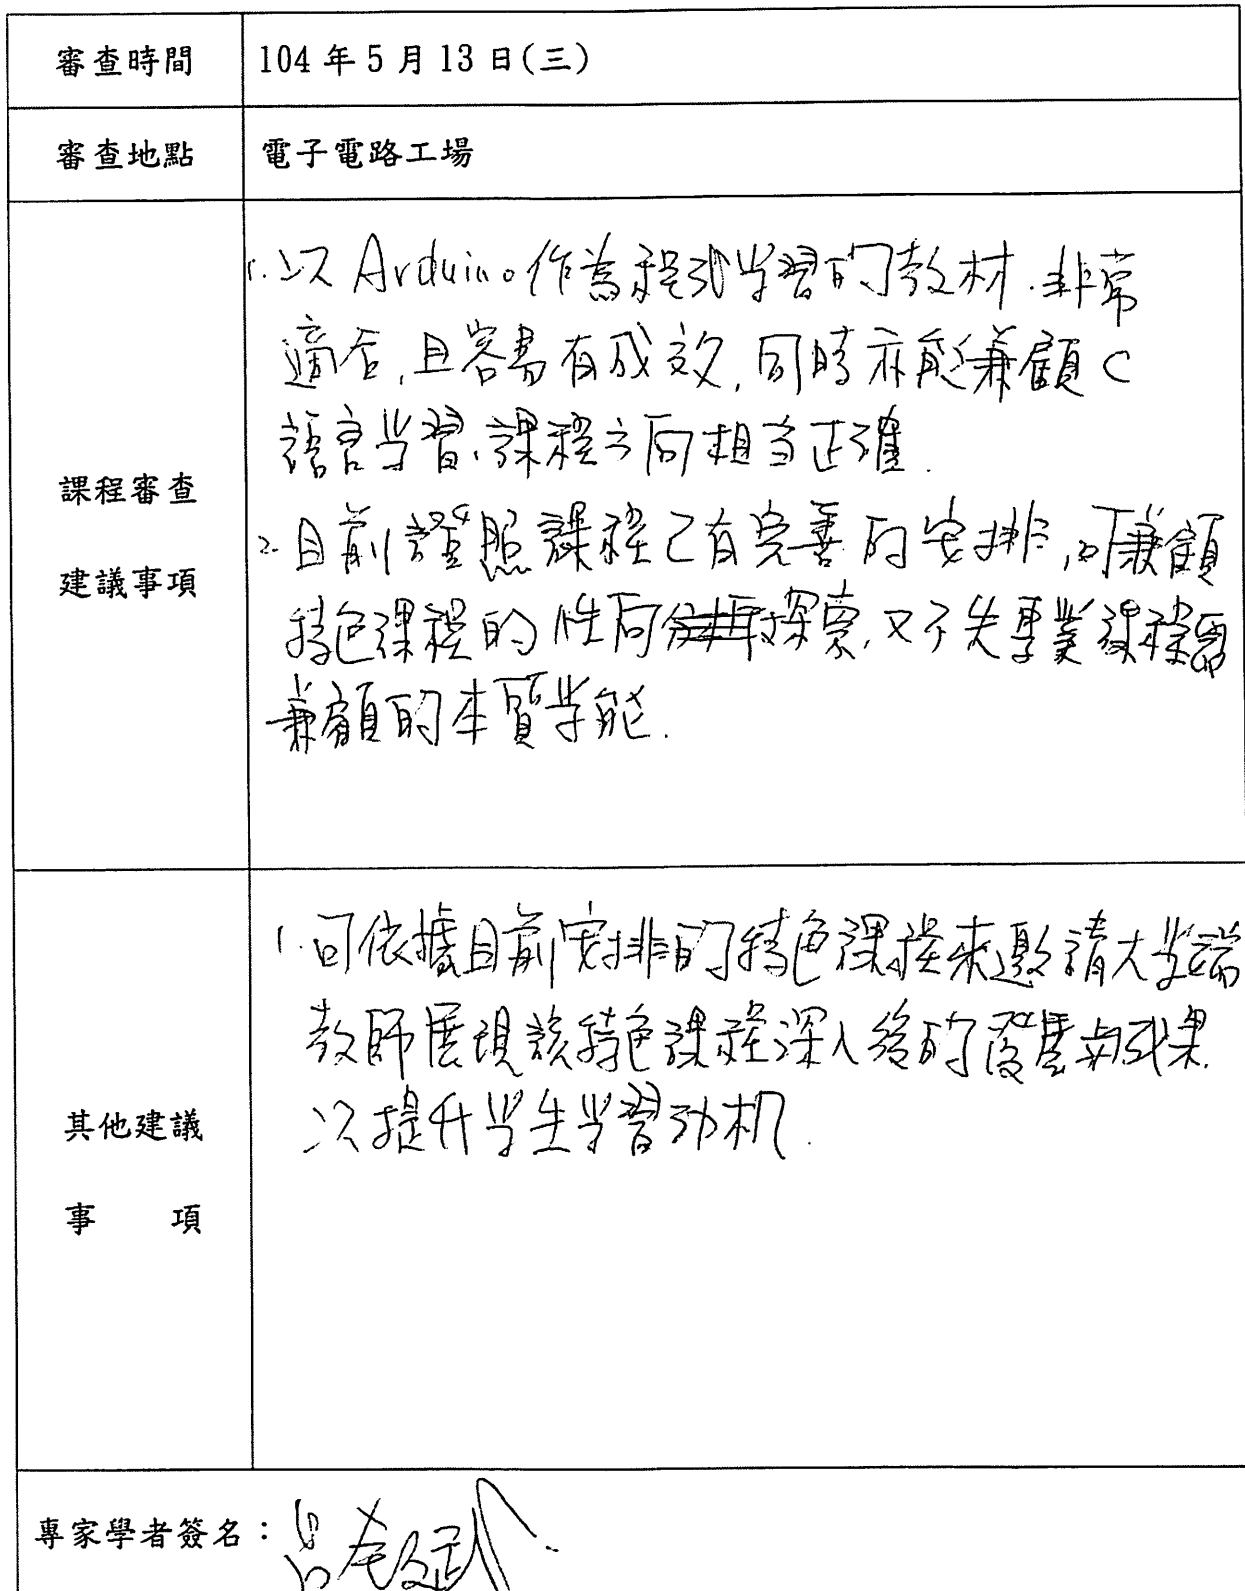 審查時間
104 年 5 月 13 日(三)
審查地點
電子電路工場
課程審查
建議事項
1.以 Arduino 作為程式学習的教材.非常
適合,且容易有成效,同時亦能兼顧 C
語言学習,課程方向相当正確.
2.目前證照課程已有完善的安排,可兼顧
特色課程的性向探索,又不失專業課程需
兼顧的本質学能.
其他建議
事 項
1.可依據目前安排的特色課程來邀請大学端
教師展現該特色課程深入後的發展與成果.
以提升学生学習动机.
專家學者簽名：